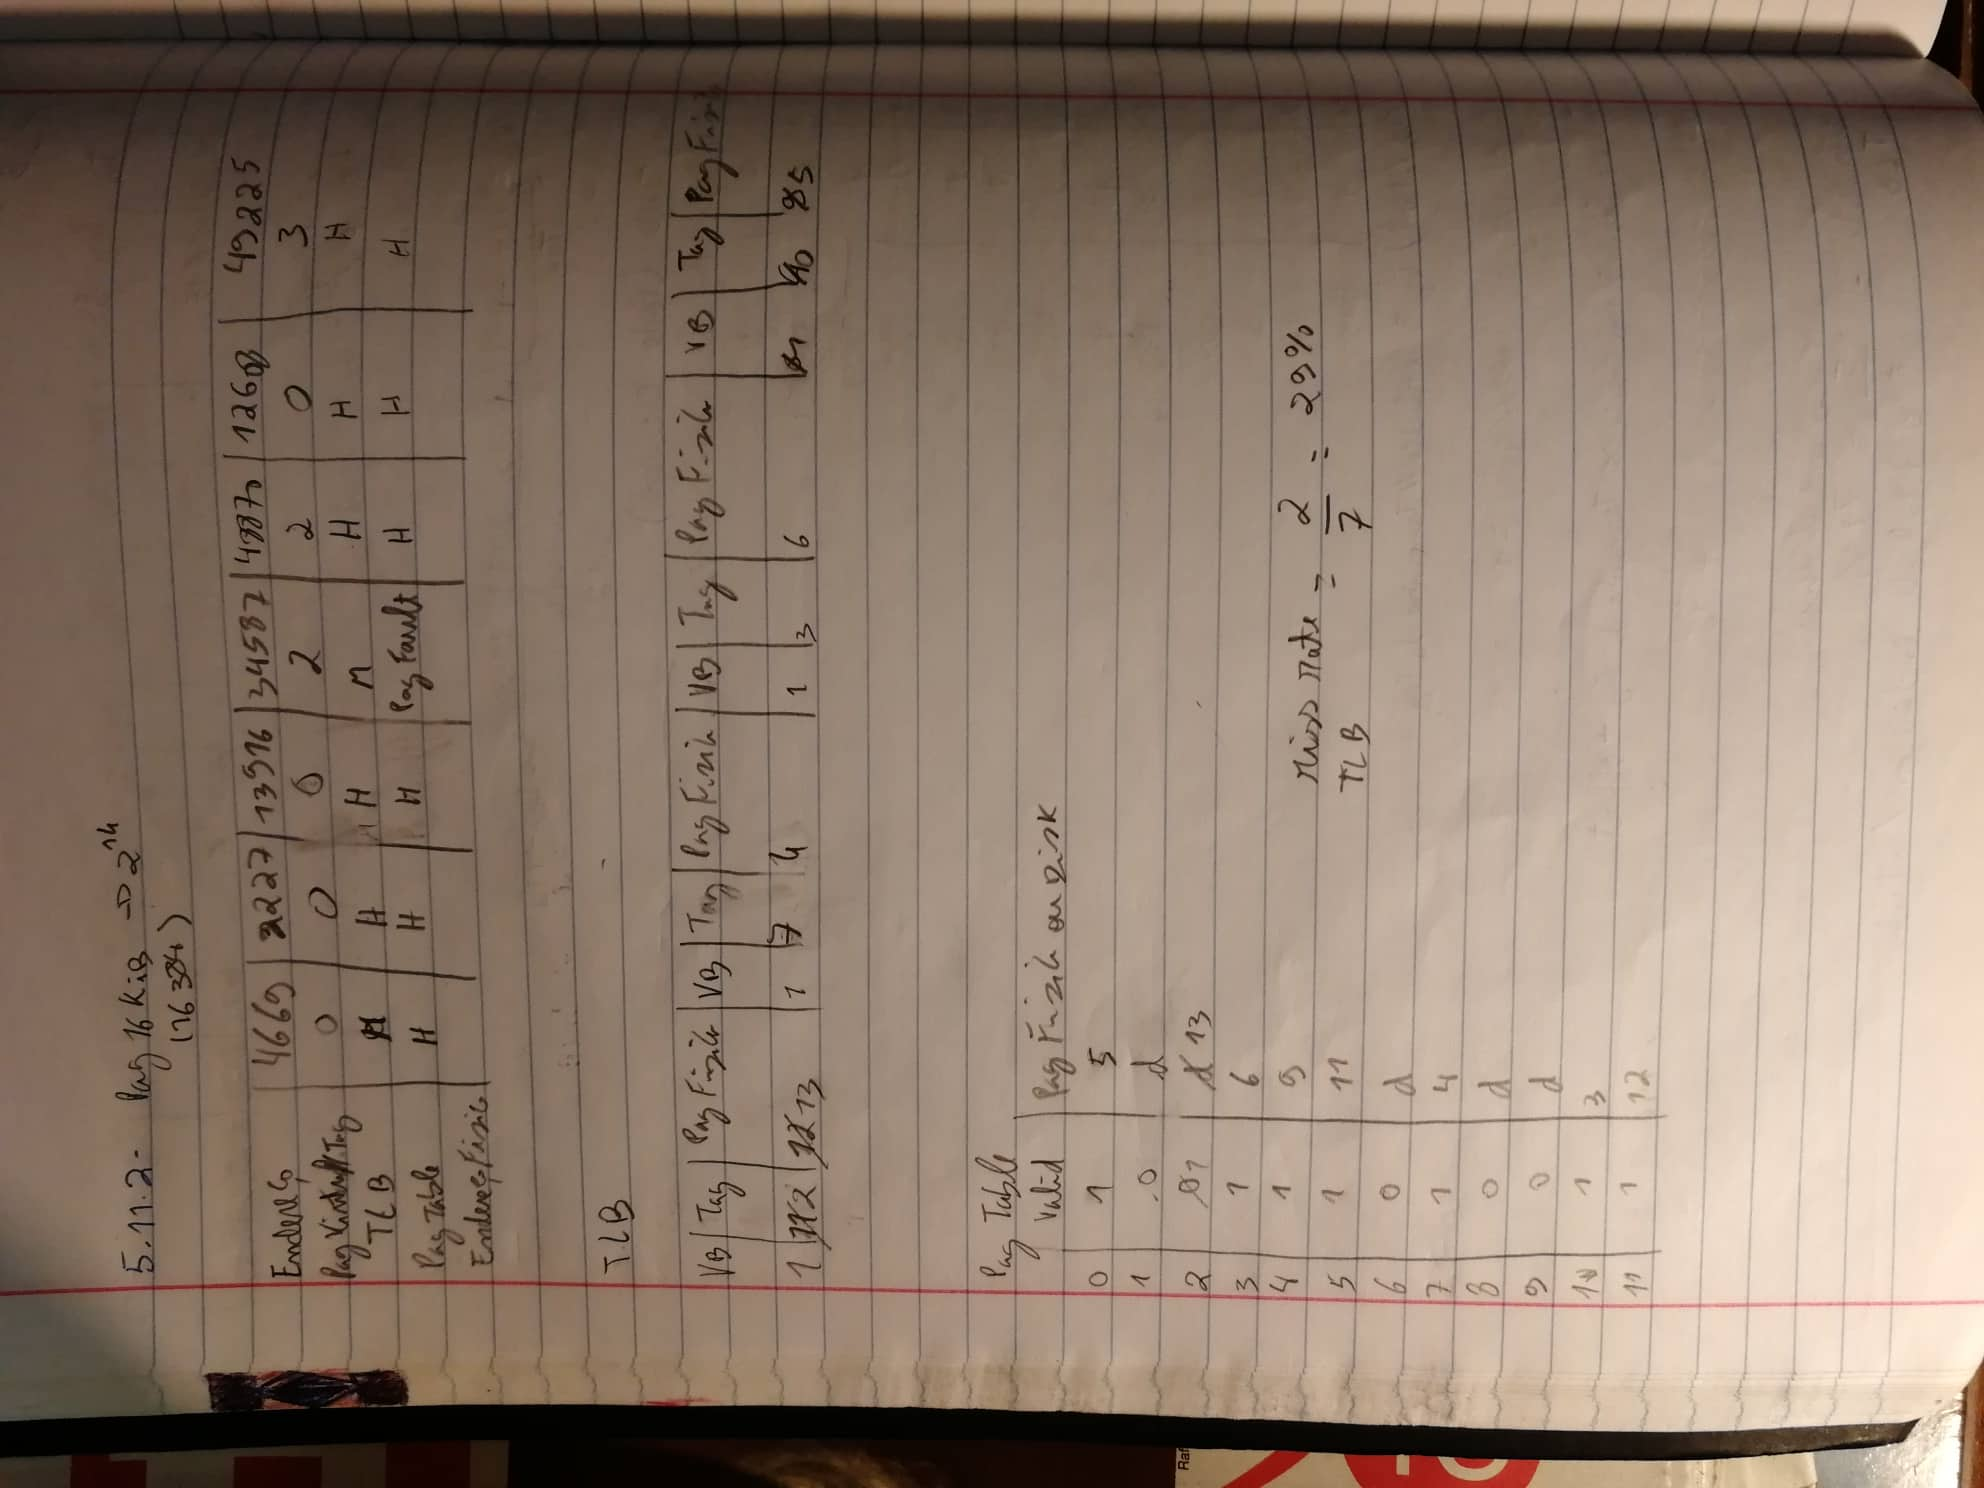 5.11.2- Pag 16 KiB → 2^14
(16384)
Endereço | 4669 | 2227 | 13916 | 34587 | 48870 | 12608 | 49225
Tag 0 0 0 2 2 0 3
TLB H H H M H H H
Pag Table H H H Pag Fault H H H
Endereço Fisico
TLB
VB | Tag | Pag Fisik | VB | Tag | Pag Fisik | VB | Tag | Pag Fisik | VB | Tag | Pag Fisi
1 | 2 | 13 | 1 | 7 | 4 | 1 | 3 | 6 | 1 | 0 | 5
Pag Table
Valid | Pag Fisik ou Disk
0 1 5
1 0 d
2 1 d 13
3 1 6
4 1 9
5 1 11
6 0 d
7 1 4
8 0 d
9 0 d
10 1 3
11 1 12
Miss rate = 2/7 = 29%
TLB
Raf